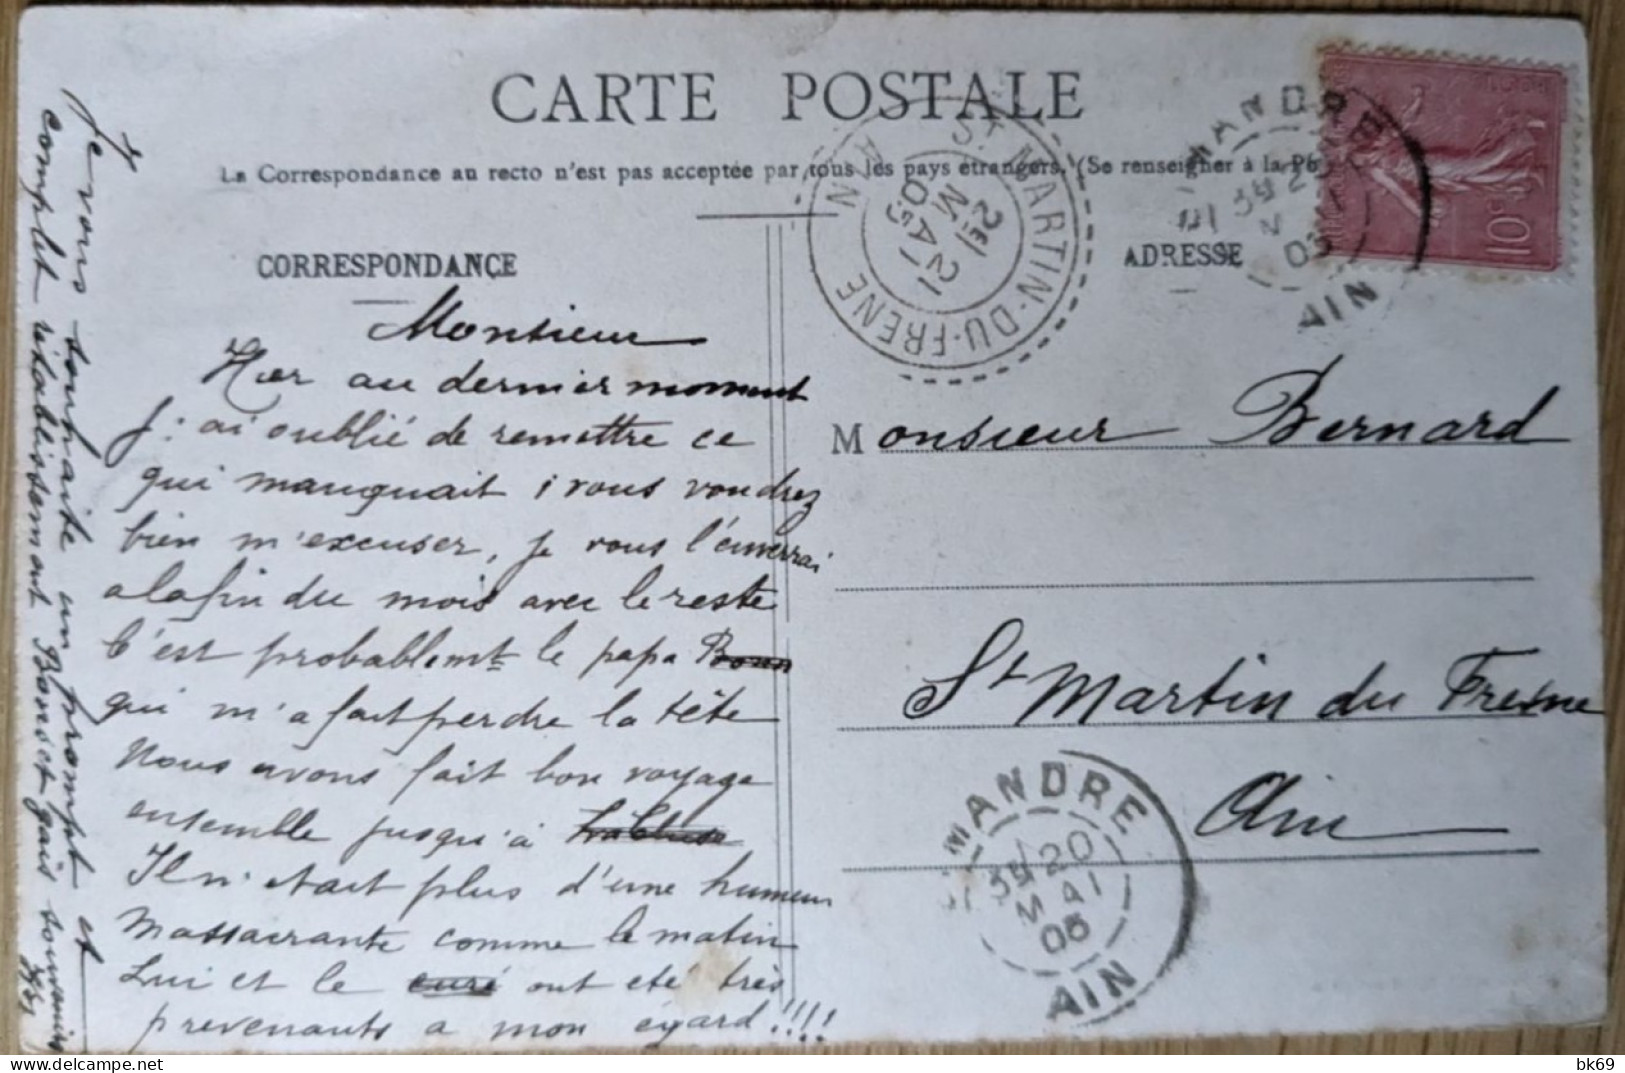 CARTE POSTALE
La Correspondance au recto n'est pas acceptée par tous les pays étrangers. (Se renseigner à la Po
CORRESPONDANCE
ADRESSE
Monsieur
Hier au dernier moment
j'ai oublié de remettre ce
qui manquait ; vous voudrez
bien m'excuser, je vous l'enverrai
a la fin du mois avec le reste
C'est probablemt le papa Bonn
qui m'a fait perdre la tête
Nous avons fait bon voyage
ensemble jusqu'à
Il n'etait plus d'une humeur
Massacrante comme le matin
Lui et le curé ont eté très
prevenants a mon égard !!!!
Je vous souhaite un prompt et
complet rétablissement Bons et gais souvenirs
Monsieur Bernard
St Martin du Fresne
Ain
ST MARTIN-DU-FRENE
AIN
2E
21
MAI
05
MANDRE
3E
20
05
AIN
10c
MANDRE
3E
20
MAI
05
AIN
bk69